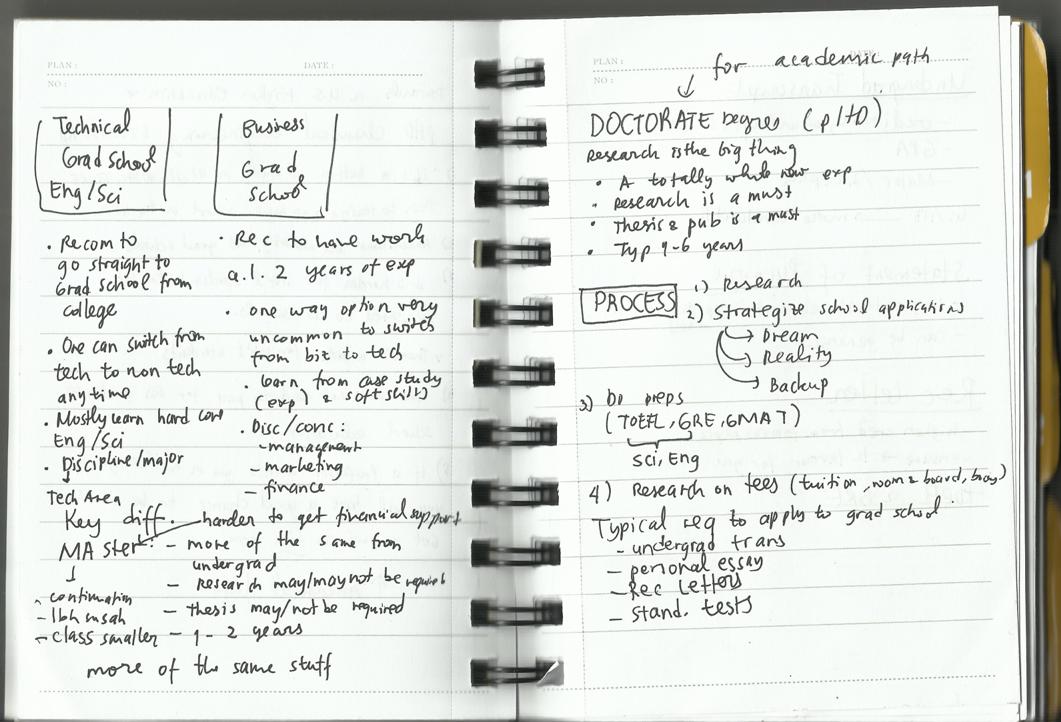 PLAN :
DATE :
NO :
Technical
Grad School
Eng/Sci
Business
Grad
School
• Recom to
go straight to
Grad school from
college
• One can switch from
tech to non tech
anytime
• Mostly learn hard core
Eng/Sci
• Discipline/major
Tech Area
• Rec to have work
a.l. 2 years of exp
• one way option very
uncommon to switch
from biz to tech
• learn from case study
(exp) & soft skills)
• Disc/conc :
- management
- marketing
- finance
Key diff. harder to get financial support
MASter :
- more of the same from
undergrad
- Research may/may not be required
- thesis may/not be required
- 1 - 2 years
- continuation
- lbh msah
- class smaller
more of the same stuff
PLAN :
DATE :
NO :
for academic path
DOCTORATE Degree (pHD)
Research is the big thing
• A totally whole new exp
• Research is a must
• Thesis & pub is a must
• Typ 4-6 years
PROCESS
1) Research
2) Strategize school applications
Dream
Reality
Backup
3) Do preps
(TOEFL, GRE, GMAT)
Sci, Eng
4) Research on fees (tuition, room & board, books)
Typical req to apply to grad school
- undergrad trans
- personal essay
- Rec Letters
- stand. tests
1